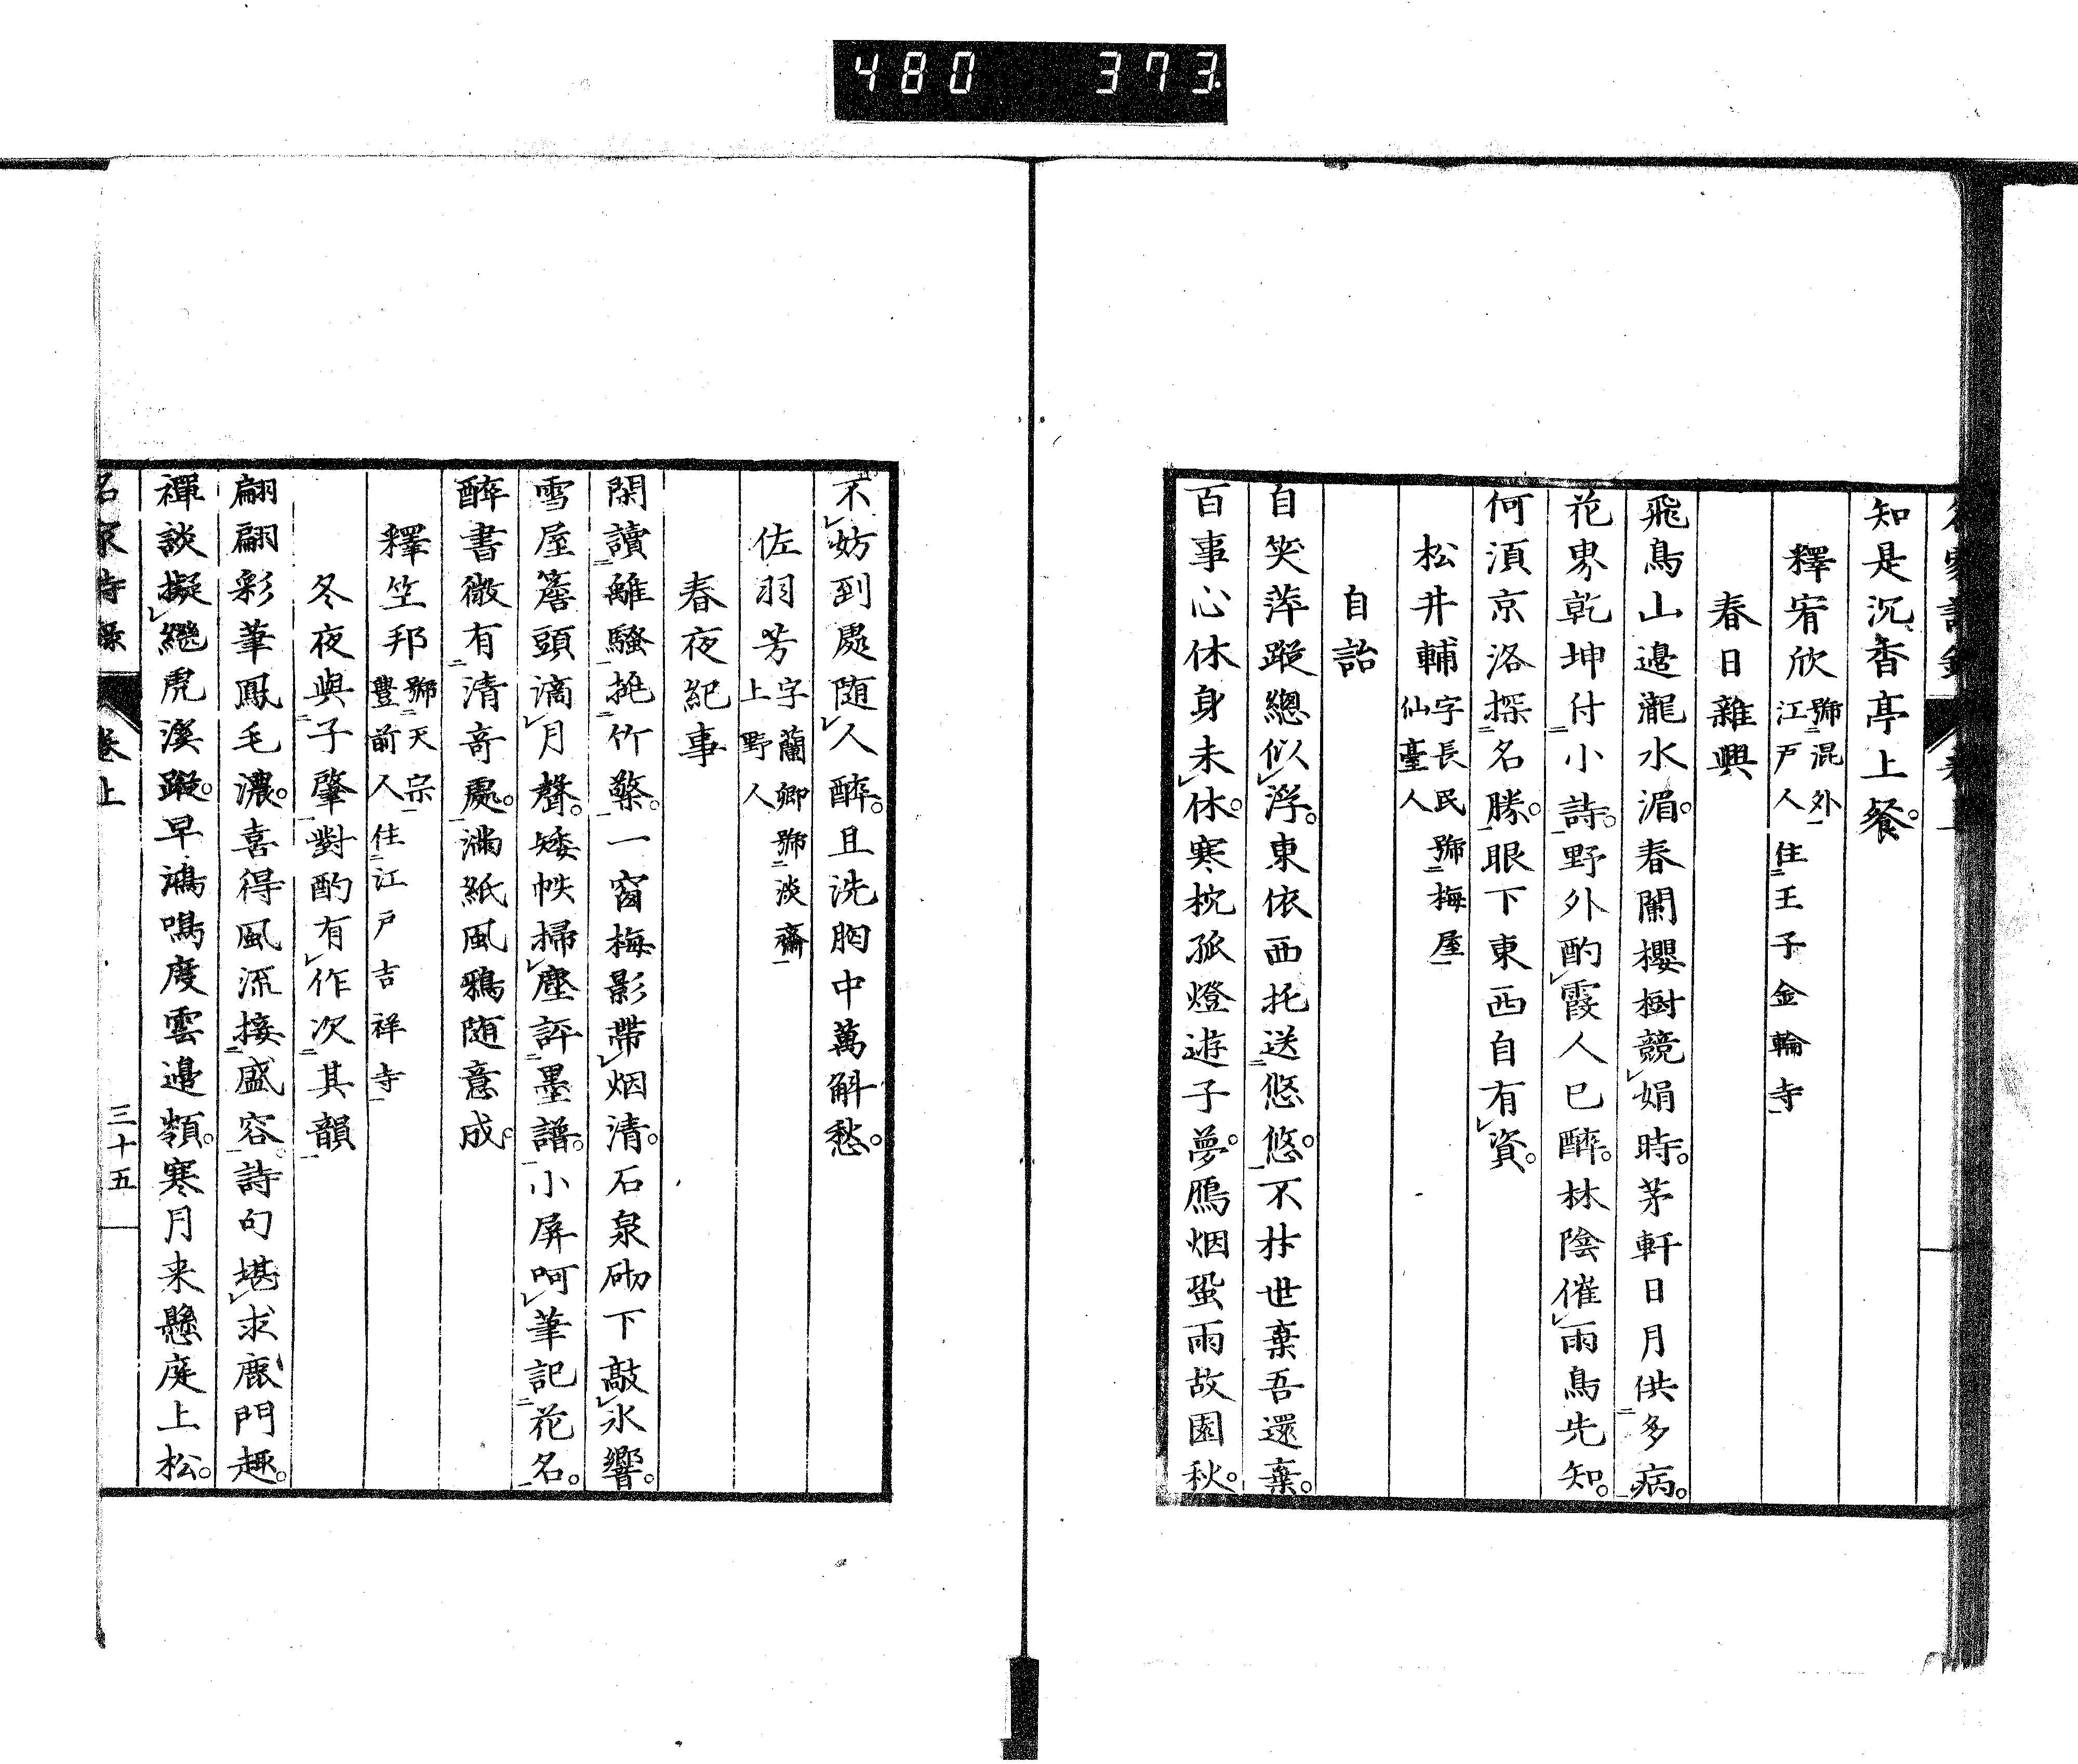 480 373
知是沉香亭上餐
釋宥欣 號混外 江戸人 住王子金輪寺
春日雜興
飛鳥山邉瀧水湄春闌櫻樹競娟時茅軒日月供多病
花界乾坤付小詩野外酌霞人已醉林陰催雨鳥先知
何湏京洛探名勝眼下東西自有資
松井輔 字長民 號梅屋 仙臺人
自詒
自笑萍蹤總似浮東依西托送悠悠不材世棄吾還棄
百事心休身未休寒枕孤燈遊子夢鴈烟蛩雨故園秋
不妨到處随人醉且洗胸中萬斛愁
佐羽芳 字蘭卿 號淡齋 上野人
春夜紀事
閑讀離騷挑竹檠一窗梅影帶烟清石泉砌下敲氷響
雪屋簷頭滴月聲矮帙掃塵評墨譜小屏呵筆記花名
醉書微有清奇處滿紙風鴉随意成
釋笠邦 號天宗 豊前人 住江戸吉祥寺
冬夜與子肇對酌有作次其韻
翩翩彩筆鳳毛濃喜得風流接盛容詩句堪求鹿門趣
禪談擬繼虎溪蹤早鴻鳴度雲邉嶺寒月来懸庭上松
名家詩録 卷上 三十五